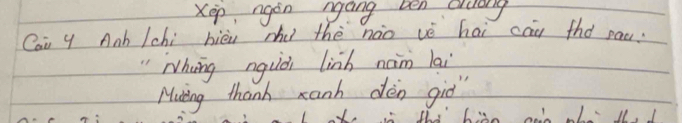 xếp, ngổn ngang bên đường
Câu 4 Anh /chi hiểu như thế nào về hai câu thơ sau:
"Những người lính nằm lại
Mường thanh xanh đến giờ"